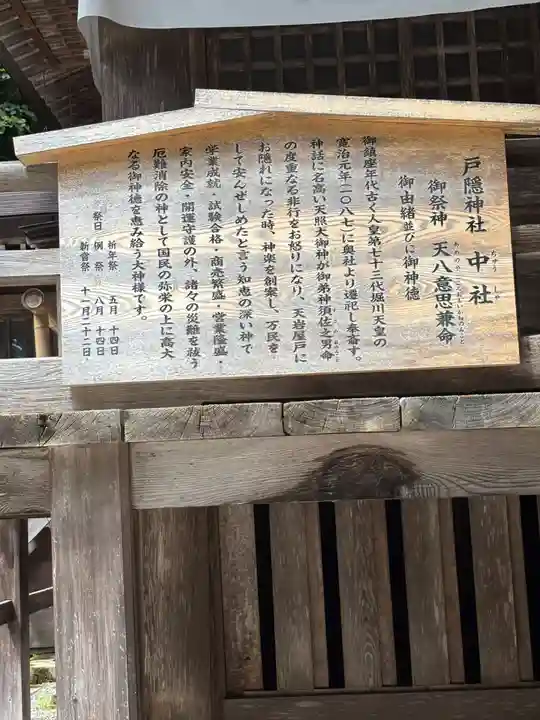 戸隠神社 中社
ちゅう しゃ
御祭神 天八意思兼命
あめのやごころおもいかねのみこと
御由緒並びに御神徳
御鎮座年代古く人皇第七十三代堀川天皇の
寛治元年(一〇八七)に奥社より遷祀し奉斎す。
神話に名高い天照大御神が御弟神須佐之男命
の度重なる非行をお怒りになり、天岩屋戸に
お隠れになった時、神楽を創案し、万民を
して安んせしめたと言う知恵の深い神で
学業成就・試験合格・商売繁盛・営業隆盛・
家内安全・開運守護の外、諸々の災難を祓う
厄難消除の神として国民の弥栄の上に高大
なる御神徳を恵み給う大神様です。
祭日 祈年祭 五月 十四日
例祭 八月 十四日
新嘗祭 十一月二十二日